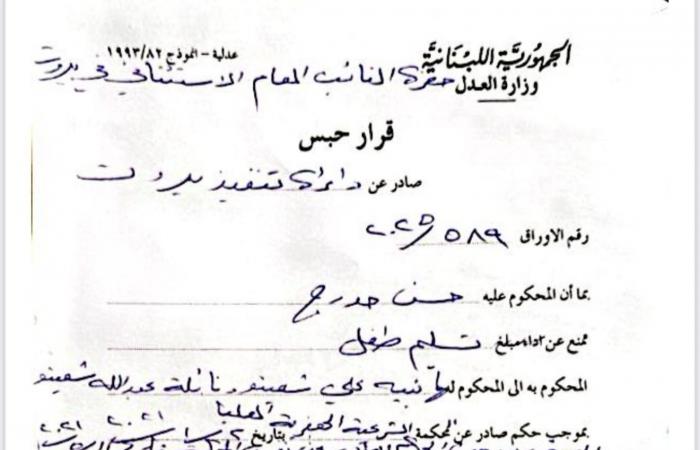 الجمهورية اللبنانية
وزارة العدل
عدلية - النموذج ١٩٩٣/٨٢
حضرة النائب العام الاستئنافي في بيروت
قرار حبس
صادر عن دائرة تنفيذ بيروت
رقم الاوراق ٥٨٩
بما أن المحكوم عليه حسن حدرج
ممتنع عن تسليم طفل
المحكوم به الى المحكوم لها نبيه علي شعيتو ونائلة عبدالله شعيتو
بموجب حكم صادر عن المحكمة الشرعية الجعفرية العليا
بتاريخ ٢٠٢١